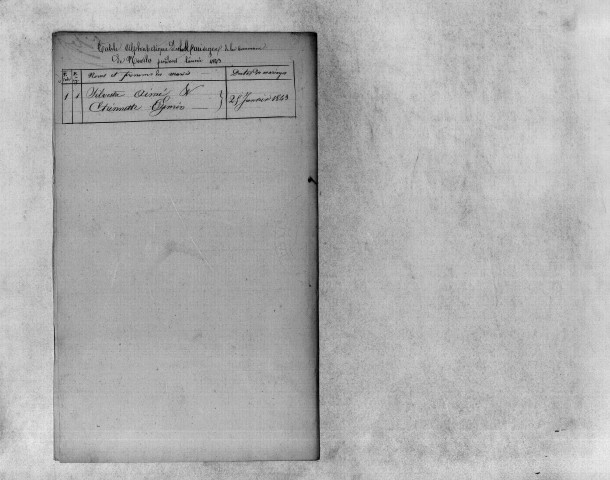 Table Alphabétique des Mariages de la commune
de pendant l'année 1843
Noms et prénoms des mariés Dates des mariages
1 1 Silvestre Aimé &
Etiennette 25 Janvier 1843